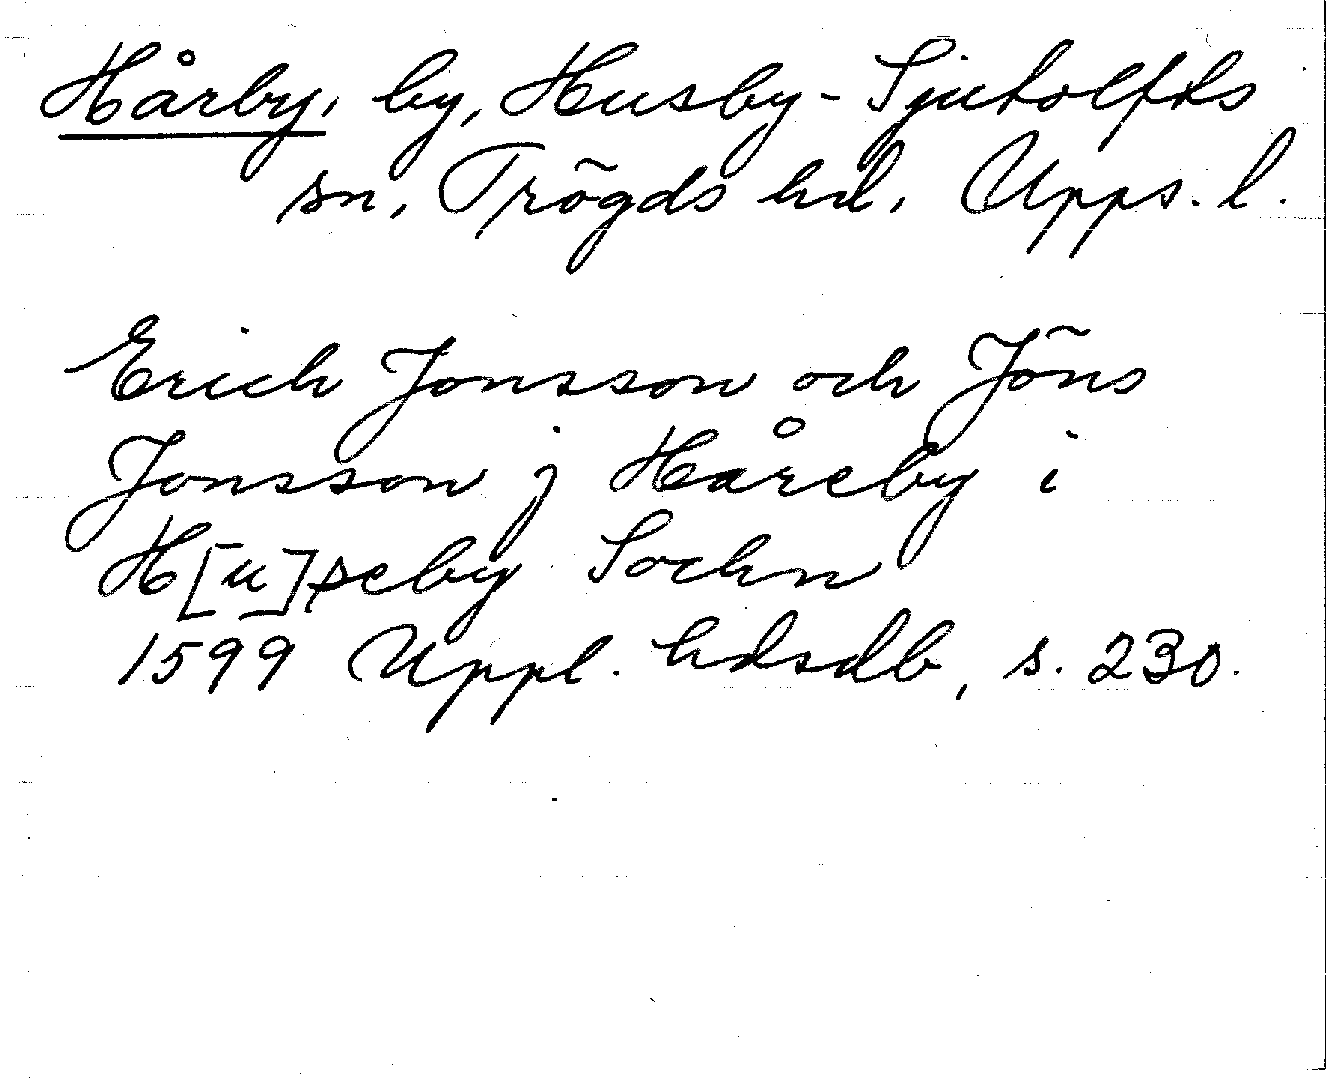 Hårby, by, Husby-Sjutolfds
sn, Trögds hd, Upps. l.
Erich Jonsson och Jöns
Jonsson j Håreby i
H[u]seby Sochn
1599 Uppl. hdsdb, s. 230.